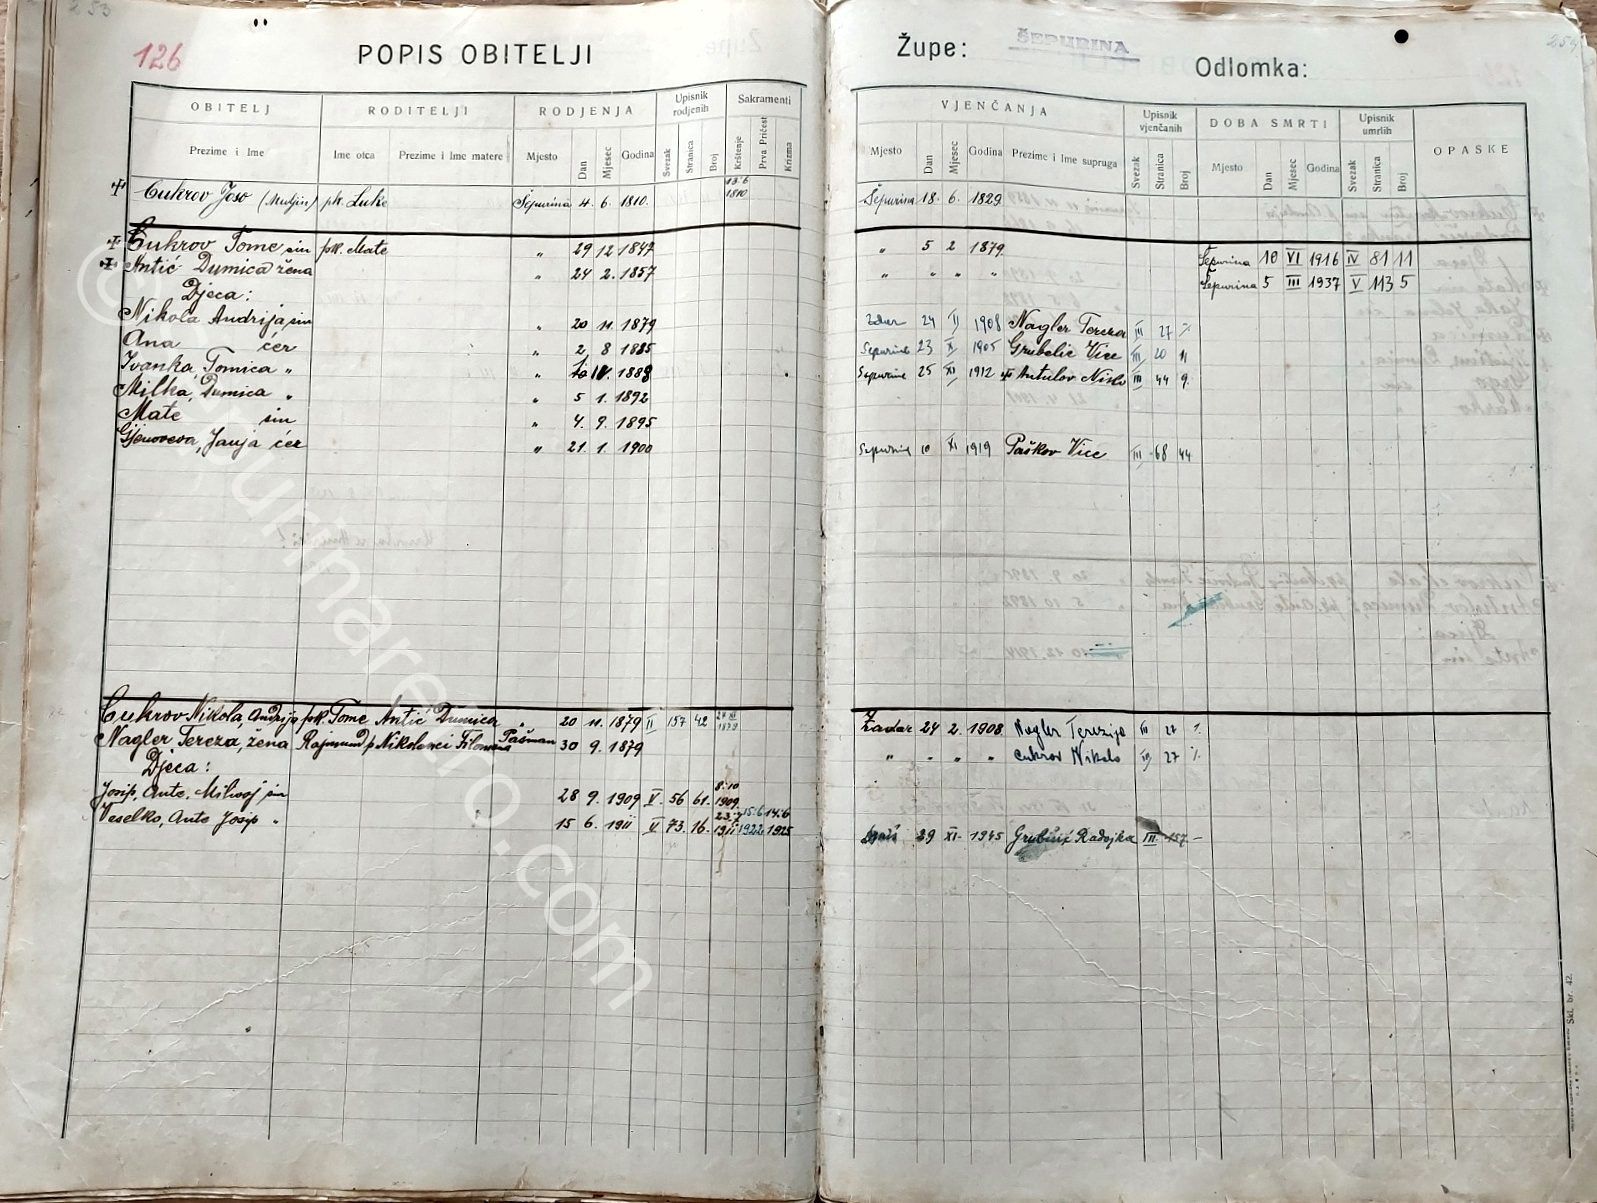 253
126
POPIS OBITELJI
OBITELJ RODITELJI RODJENJA Upisnik rodjenih Sakramenti
Prezime i Ime Ime otca Prezime i Ime matere Mjesto Dan Mjesec Godina Svezak Stranica Broj Krštenje Prva Pričest Krizma
Cukrov Joso (Muljin) pk. Luke Šepurina 4. 6. 1810. 13.6 1810
Cukrov Tome sin pok. Mate " 29 12 1847
Antić Dumica žena " 24 2. 1857
Djeca:
Nikola Andrija sin " 20 11. 1879
Ana ćer " 2 8 1885
Ivanka, Tomica " " 1888
Milka, Dumica " " 5 1. 1892
Mate sin " 4. 9. 1895
Gjenoveva, Janja ćer " 21 1. 1900
Cukrov Nikola, Andrija pok. Tome Antić Dumica " 20 11. 1879 II 157 42 1879
Nagler Tereza, žena Rajmund p. Nikolanci Filomena Pašman 30 9. 1879
Djeca:
Josip, Ante, Milivoj sin 28 9. 1909 V 56 61. 8.10 1909.
Veselko, Ante Josip " 15 6. 1911 V 73. 16. 23.7 1911 15.6 1922 14.6 1925
Župe: ŠEPURINA
Odlomka:
254
VJENČANJA Upisnik vjenčanih DOBA SMRTI Upisnik umrlih OPASKE
Mjesto Dan Mjesec Godina Prezime i Ime supruga Svezak Stranica Broj Mjesto Dan Mjesec Godina Svezak Stranica Broj
Šepurina 18. 6. 1829.
" 5 2 1879. Šepurina 10 VI 1916 IV 81 11
" " " " Šepurina 5 III 1937 V 113 5
Zadar 24 II 1908 Nagler Tereza III 27 %
Šepurina 23 XI 1905 Grubelic Vice III 20 11
Šepurine 25 XI 1912 Antulov Niko III 44 9.
Šepurina 10 XI 1919 Paškov Vice III 68 44
Zadar 24 2. 1908. Nagler Terezija III 27 %
" " " " Cukrov Nikola III 27 %
29 XI. 1945 Grubišić Radojka III. 157. -
Skl. br. 42.
© sepurinarero.com